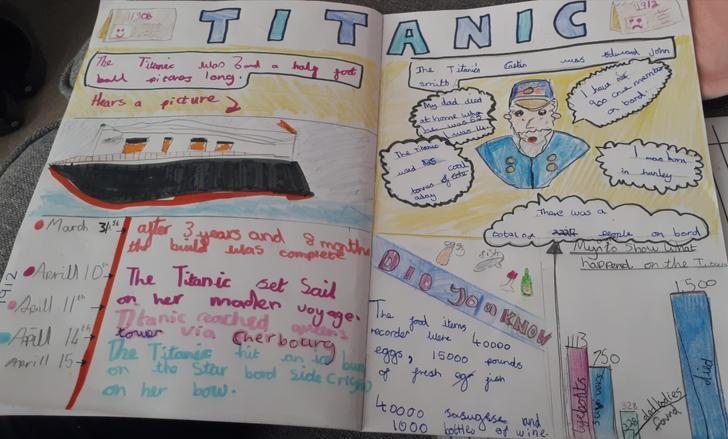 1908
TITANIC
1912
The Titanic was 2 and a half foot
ball picares long.
Hears a picture
March 31st
after 3 years and 8 months
the build was complete
1912
Aprill 10th
The Titanic set Sail
on her maden voyage.
Aprill 11th
Titanic reached queens
tower via Cherbourg
Aprill 14th
The Titanic hit an ice burg
on the Star bord side (right)
on her bow.
Aprill 15
The Titanic's Captin was Edward John
smith
My dad died
at home when
he was
I was
I have
900 crew members
a bord.
The Titanic
used coal
tonnes of
aday
I was born
in hanley
There was a
total of people on bord
DID YOU KNOW
egg
fish
The food items
recorder were 40000
eggs, 15000 pounds
of fresh of fish
40000 sasugese and
1000 bottles of wine
to Show what
happend on the Titanic
1113
750
328
1500
died
dedbodies
found